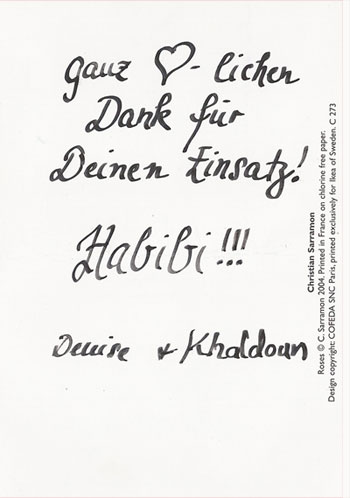 ganz ♡-lichen
Dank für
Deinen Einsatz!
Habibi!!!
Denise + Khaldoun
Christian Sarramon
Roses © C. Sarramon 2004. Printed in France on chlorine free paper.
Design copyright: COFEDA SNC Paris, printed exclusively for Ikea of Sweden. C 273